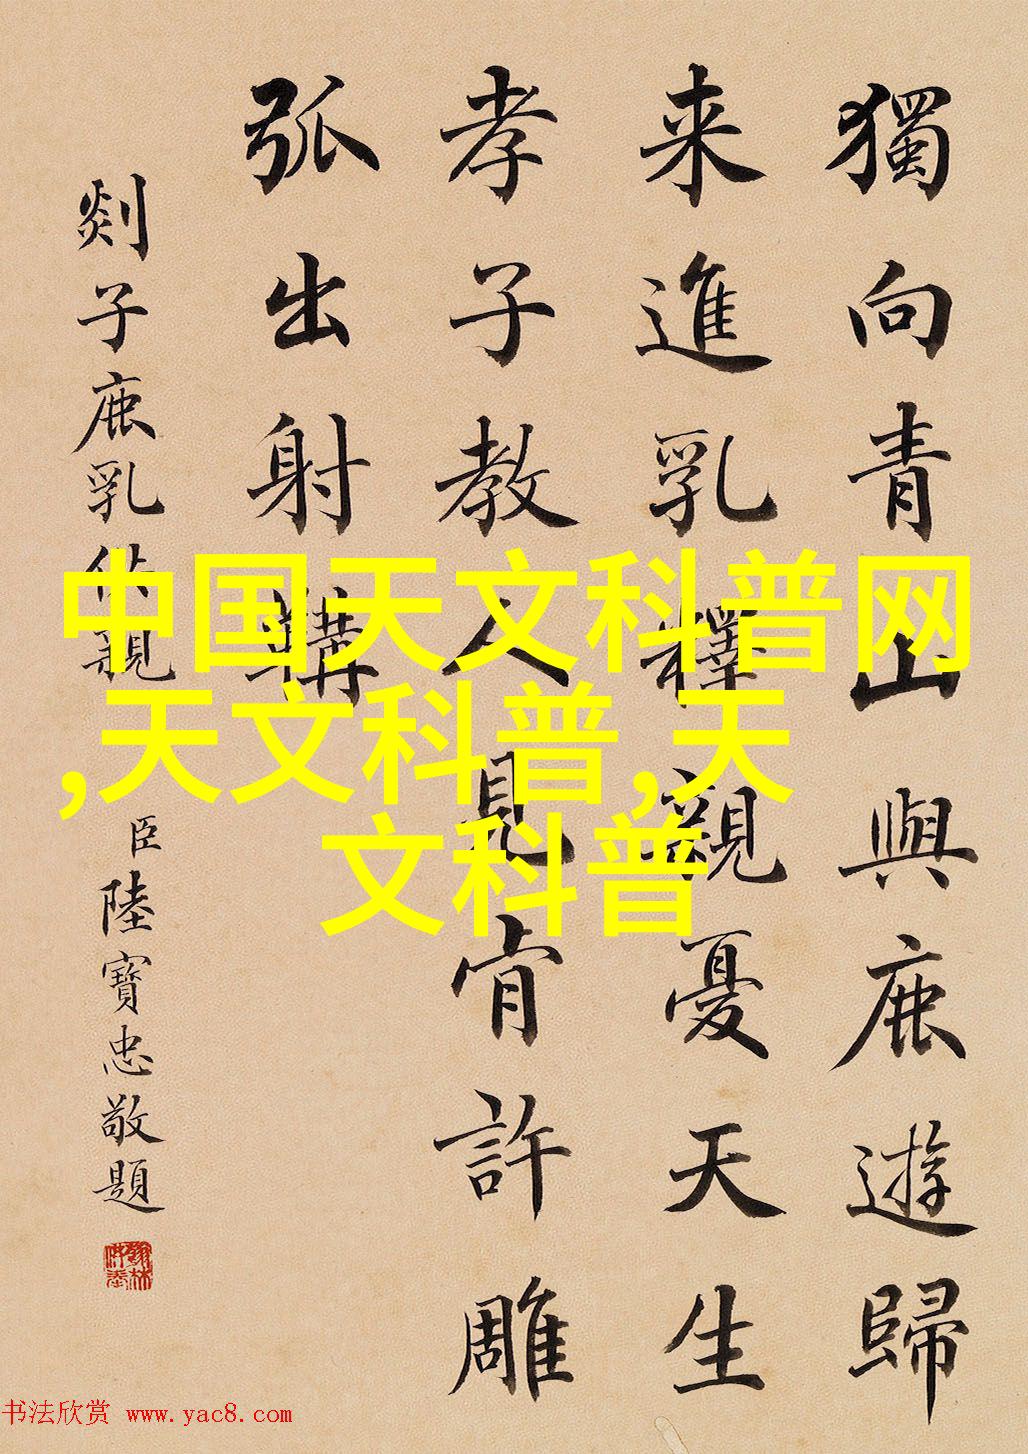 獨向青山與鹿遊歸
来進乳釋親憂天生
孝子教人見肯許雕
弧出射韝
剡子鹿乳供親
臣陸寶忠敬題
中国天文科普网
,天文科普,天
文科普
书法欣赏 www.yac8.com